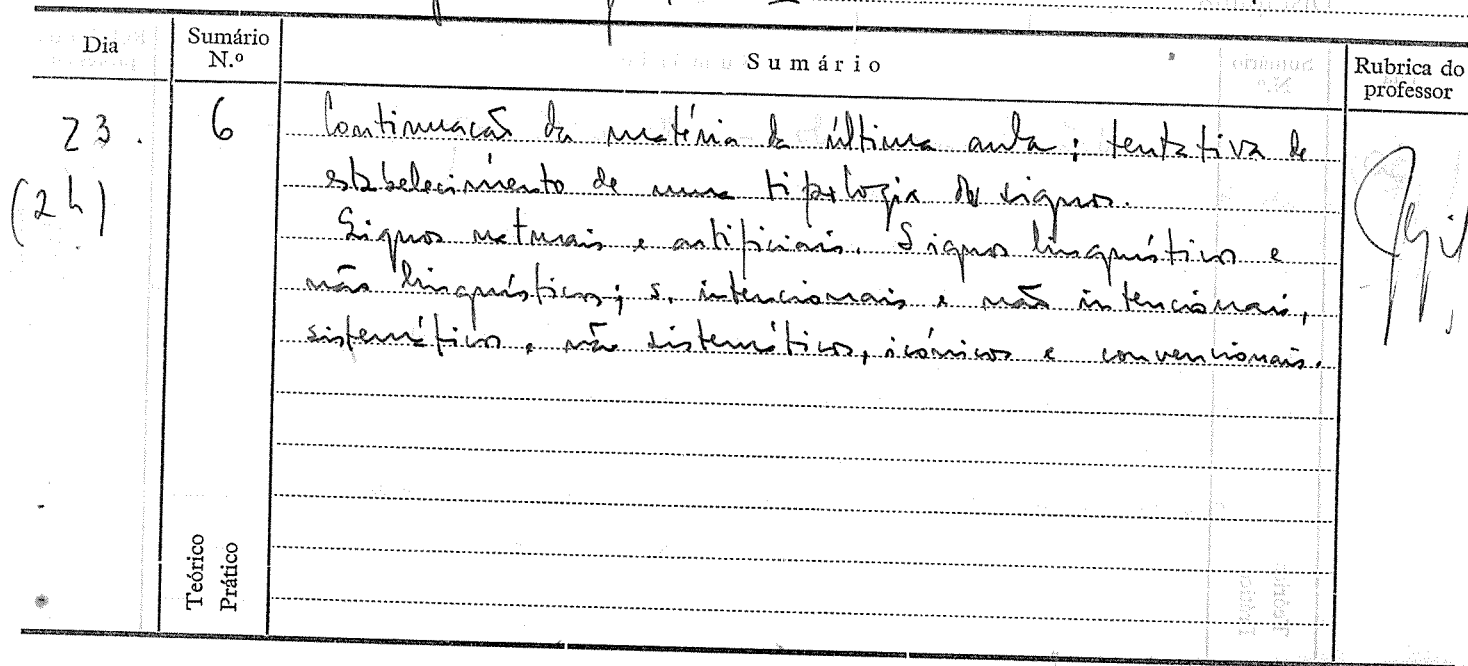 Dia
Sumário N.º
Sumário
Rubrica do professor
23.
(2h)
6
Continuação da matéria da última aula; tentativa de
estabelecimento de uma tipologia de signos.
Signos naturais e artificiais. Signos linguísticos e
não linguísticos; s. intencionais e não intencionais,
sistemáticos e não sistemáticos, icónicos e convencionais.
Teórico
Prático